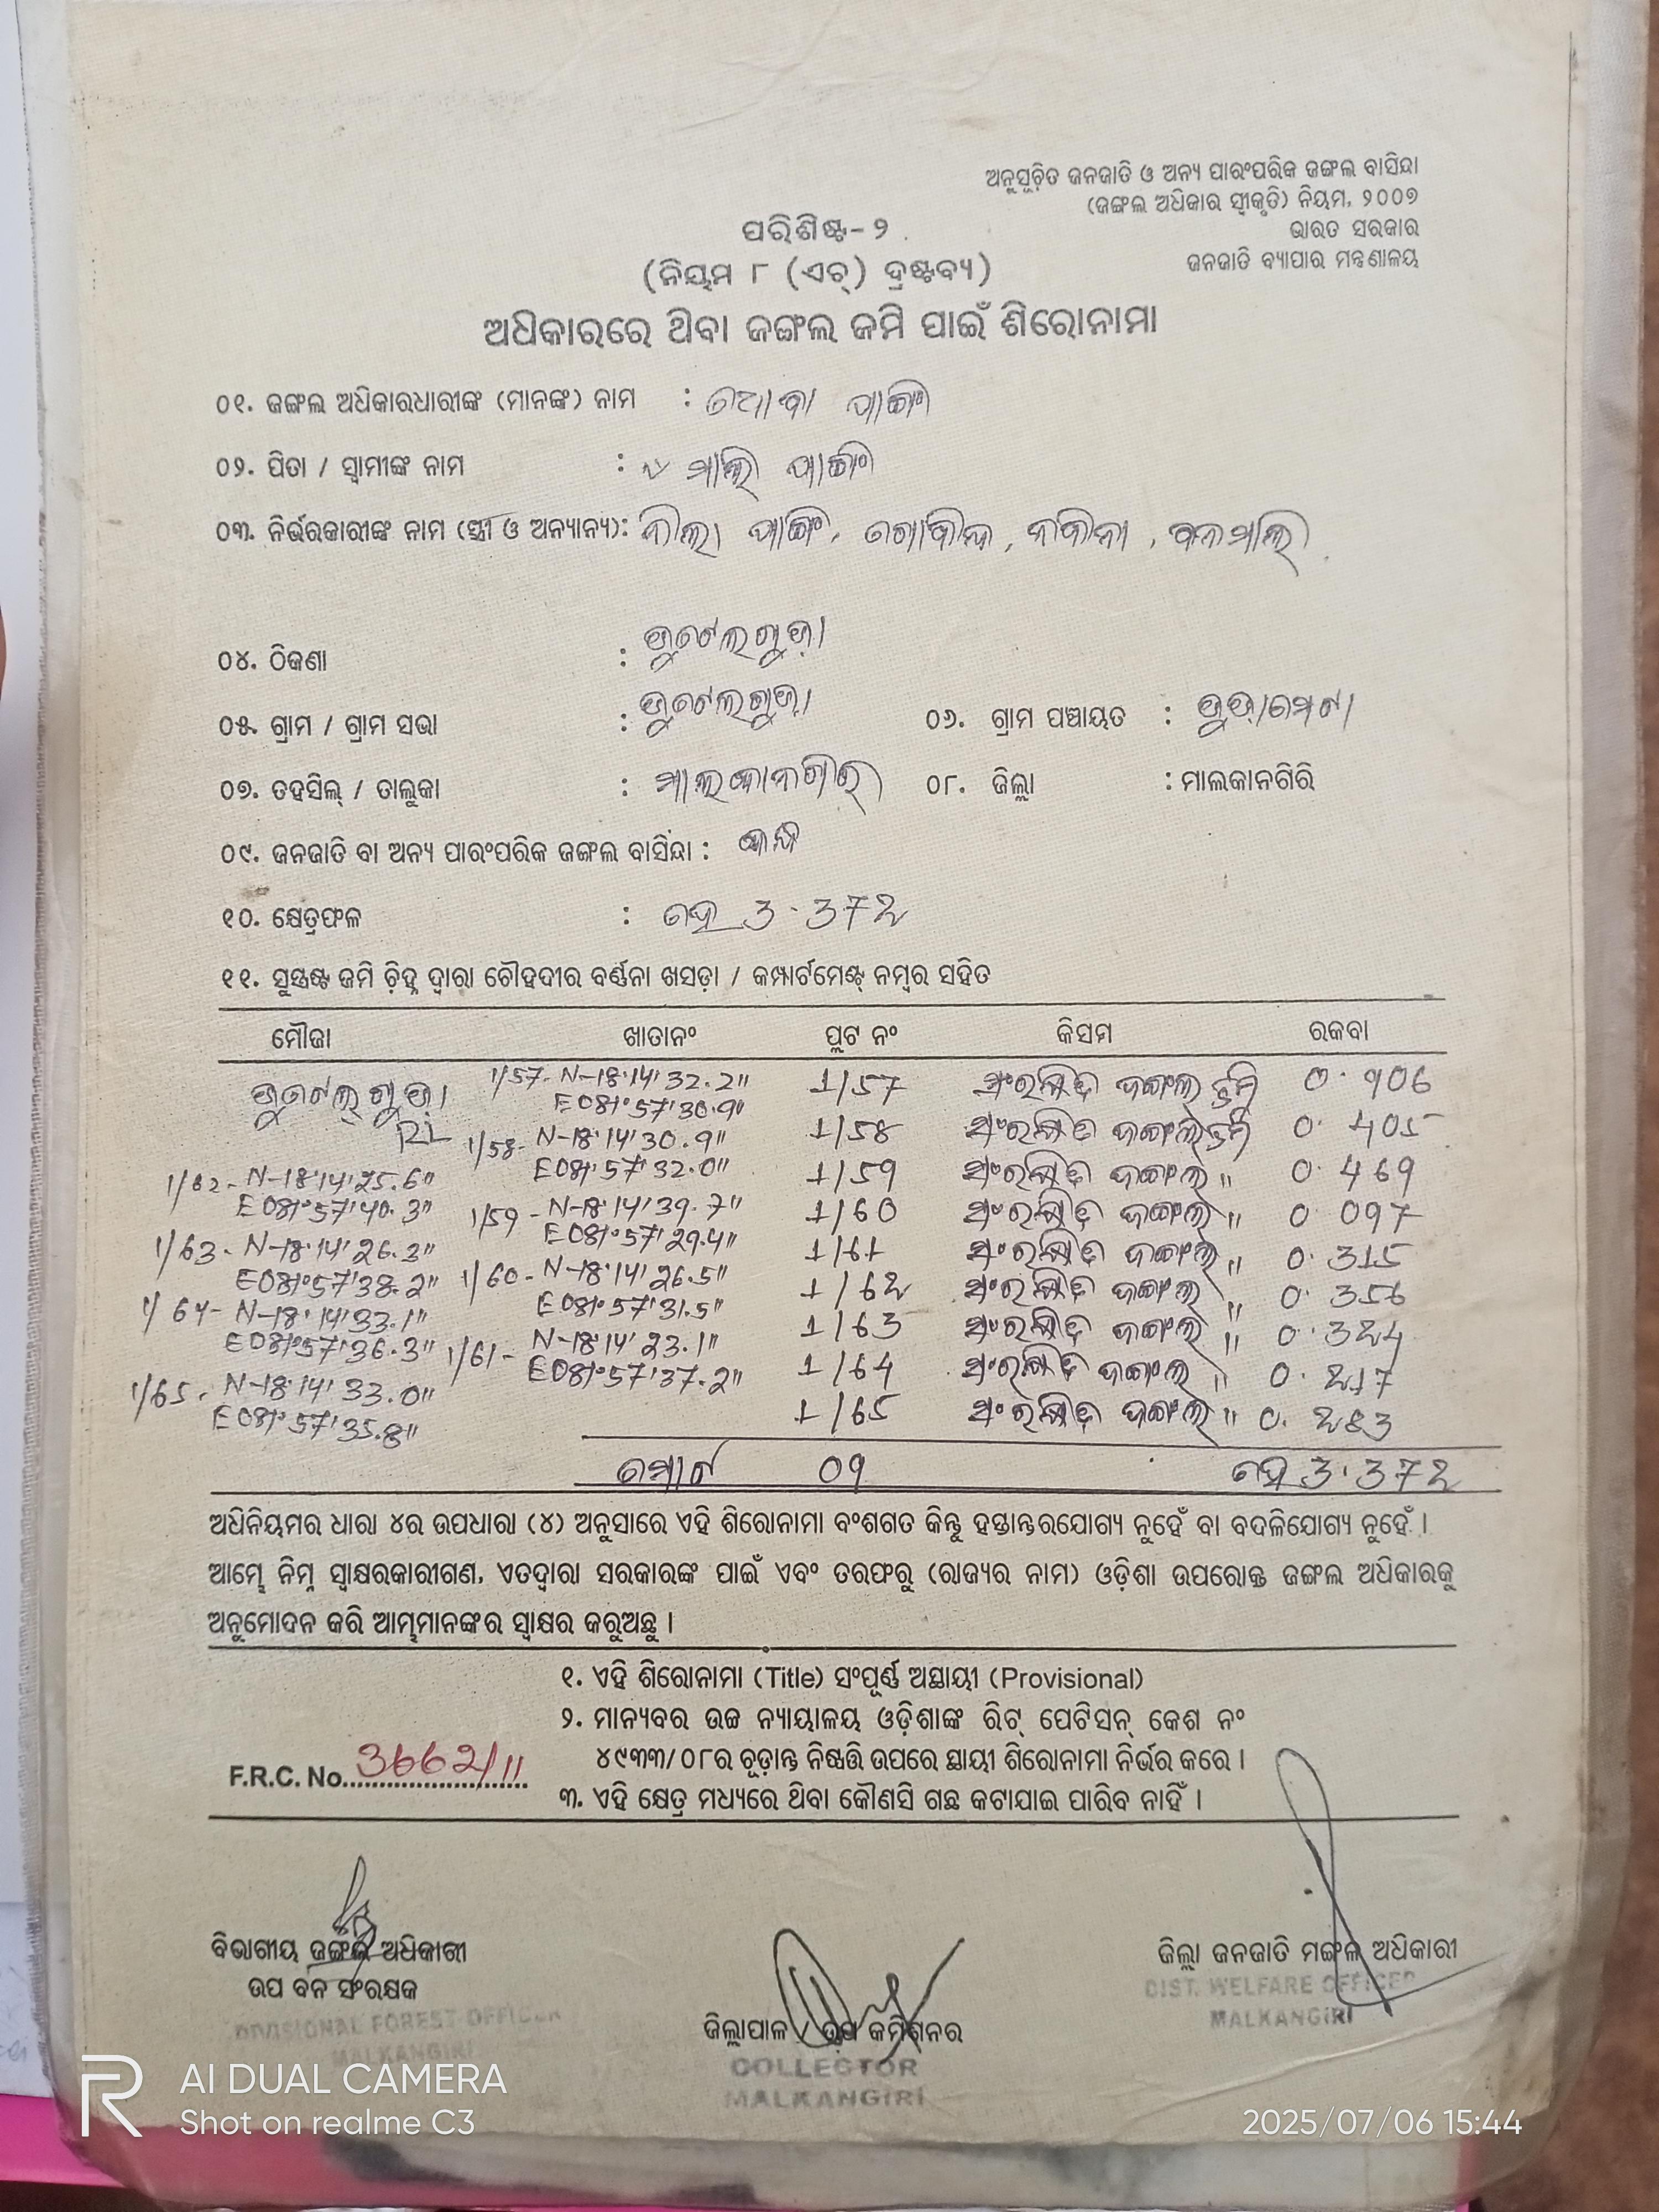 ଅନୁସୂଚିତ ଜନଜାତି ଓ ଅନ୍ୟ ପାରଂପରିକ ଜଙ୍ଗଲ ବାସିନ୍ଦା
(ଜଙ୍ଗଲ ଅଧିକାର ସ୍ୱୀକୃତି) ନିୟମ, ୨୦୦୭
ଭାରତ ସରକାର
ଜନଜାତି ବ୍ୟାପାର ମନ୍ତ୍ରଣାଳୟ
ପରିଶିଷ୍ଟ-୨
(ନିୟମ ୮ (ଏଚ୍) ଦ୍ରଷ୍ଟବ୍ୟ)
ଅଧିକାରରେ ଥିବା ଜଙ୍ଗଲ ଜମି ପାଇଁ ଶିରୋନାମା
୦୧. ଜଙ୍ଗଲ ଅଧିକାରଧାରୀଙ୍କ (ମାନଙ୍କ) ନାମ :
୦୨. ପିତା / ସ୍ୱାମୀଙ୍କ ନାମ : ମାଲି
୦୩. ନିର୍ଭରକାରୀଙ୍କ ନାମ (ସ୍ତ୍ରୀ ଓ ଅନ୍ୟାନ୍ୟ):
୦୪. ଠିକଣା :
୦୫. ଗ୍ରାମ / ଗ୍ରାମ ସଭା : ୦୬. ଗ୍ରାମ ପଞ୍ଚାୟତ :
୦୭. ତହସିଲ୍ / ତାଲୁକା : ମାଲକାନଗିରି ୦୮. ଜିଲ୍ଲା : ମାଲକାନଗିରି
୦୯. ଜନଜାତି ବା ଅନ୍ୟ ପାରଂପରିକ ଜଙ୍ଗଲ ବାସିନ୍ଦା :
୧୦. କ୍ଷେତ୍ରଫଳ : ହେ 3.372
୧୧. ସୁସ୍ପଷ୍ଟ ଜମି ଚିହ୍ନ ଦ୍ୱାରା ଚୌହଦୀର ବର୍ଣ୍ଣନା ଖସଡ଼ା / କମ୍ପାର୍ଟମେଣ୍ଟ୍ ନମ୍ବର ସହିତ
ମୌଜା ଖାତାନଂ ପ୍ଲଟ ନଂ କିସମ ରକବା
1/57- N-18°14'32.2" 1/57 ସଂରକ୍ଷିତ ଜଙ୍ଗଲ ଜମି 0.906
E081°57'30.9"
1/58- N-18°14'30.9" 1/58 ସଂରକ୍ଷିତ ଜଙ୍ଗଲ ଜମି 0.405
E081°57'32.0"
1/62- N-18°14'25.6" 1/59 ସଂରକ୍ଷିତ ଜଙ୍ଗଲ " 0.469
E081°57'40.3"
1/59- N-18°14'39.7" 1/60 ସଂରକ୍ଷିତ ଜଙ୍ଗଲ " 0.097
E081°57'29.4"
1/63- N-18°14'26.3" 1/61 ସଂରକ୍ଷିତ ଜଙ୍ଗଲ " 0.315
E081°57'38.2"
1/60- N-18°14'26.5" 1/62 ସଂରକ୍ଷିତ ଜଙ୍ଗଲ " 0.356
E081°57'31.5"
1/64- N-18°14'33.1" 1/63 ସଂରକ୍ଷିତ ଜଙ୍ଗଲ " 0.324
E081°57'36.3"
1/61- N-18°14'23.1" 1/64 ସଂରକ୍ଷିତ ଜଙ୍ଗଲ " 0.217
E081°57'37.2"
1/65- N-18°14'33.0" 1/65 ସଂରକ୍ଷିତ ଜଙ୍ଗଲ " 0.283
E081°57'35.8"
ମୋଟ 09 ହେ 3.372
ଅଧିନିୟମର ଧାରା ୪ର ଉପଧାରା (୪) ଅନୁସାରେ ଏହି ଶିରୋନାମା ବଂଶଗତ କିନ୍ତୁ ହସ୍ତାନ୍ତରଯୋଗ୍ୟ ନୁହେଁ ବା ବଦଳିଯୋଗ୍ୟ ନୁହେଁ ।
ଆମ୍ଭେ ନିମ୍ନ ସ୍ୱାକ୍ଷରକାରୀଗଣ, ଏତଦ୍ୱାରା ସରକାରଙ୍କ ପାଇଁ ଏବଂ ତରଫରୁ (ରାଜ୍ୟର ନାମ) ଓଡ଼ିଶା ଉପରୋକ୍ତ ଜଙ୍ଗଲ ଅଧିକାରକୁ
ଅନୁମୋଦନ କରି ଆମ୍ଭମାନଙ୍କର ସ୍ୱାକ୍ଷର କରୁଅଛୁ ।
୧. ଏହି ଶିରୋନାମା (Title) ସଂପୂର୍ଣ୍ଣ ଅସ୍ଥାୟୀ (Provisional)
୨. ମାନ୍ୟବର ଉଚ୍ଚ ନ୍ୟାୟାଳୟ ଓଡ଼ିଶାଙ୍କ ରିଟ୍ ପେଟିସନ୍ କେଶ ନଂ
୪୯୩୩/୦୮ର ଚୂଡ଼ାନ୍ତ ନିଷ୍ପତ୍ତି ଉପରେ ସ୍ଥାୟୀ ଶିରୋନାମା ନିର୍ଭର କରେ ।
F.R.C. No. 3662/11
୩. ଏହି କ୍ଷେତ୍ର ମଧ୍ୟରେ ଥିବା କୌଣସି ଗଛ କଟାଯାଇ ପାରିବ ନାହିଁ ।
ବିଭାଗୀୟ ଜଙ୍ଗଲ ଅଧିକାରୀ
ଉପ ବନ ସଂରକ୍ଷକ
DIVISIONAL FOREST OFFICER
MALKANGIRI
ଜିଲ୍ଲାପାଳ / ଉପ କମିଶନର
COLLECTOR
MALKANGIRI
ଜିଲ୍ଲା ଜନଜାତି ମଙ୍ଗଳ ଅଧିକାରୀ
DIST. WELFARE OFFICER
MALKANGIRI
AI DUAL CAMERA
Shot on realme C3
2025/07/06 15:44